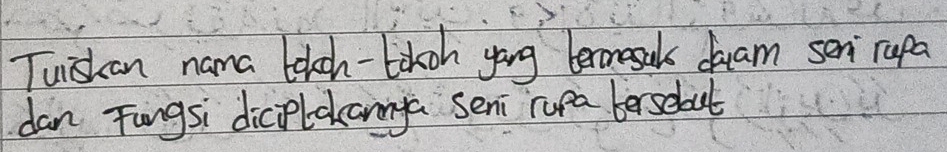 Tuiskan nama tokoh-tokoh yang termasuk dalam seni rupa
dan Fungsi diciptakannya seni rupa tersebut